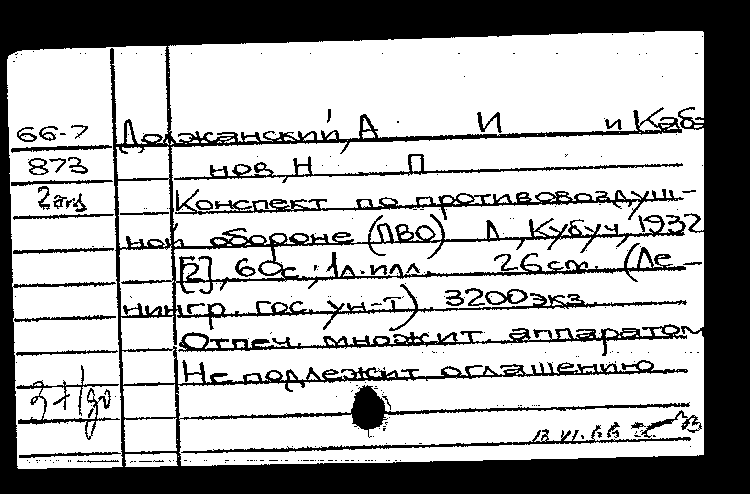 66-7 Должанский, А И и Каба
873 нов, Н П
2 экз Конспект по противовоздуш-
ной обороне (ПВО) Л, Кубуч, 1932
[2], 60с.; 1л. илл. 26 см. (Ле-
нингр. гос. ун-т). 3200 экз.
Отпеч. множит. аппаратом
Не подлежит оглашению
13.VI.66